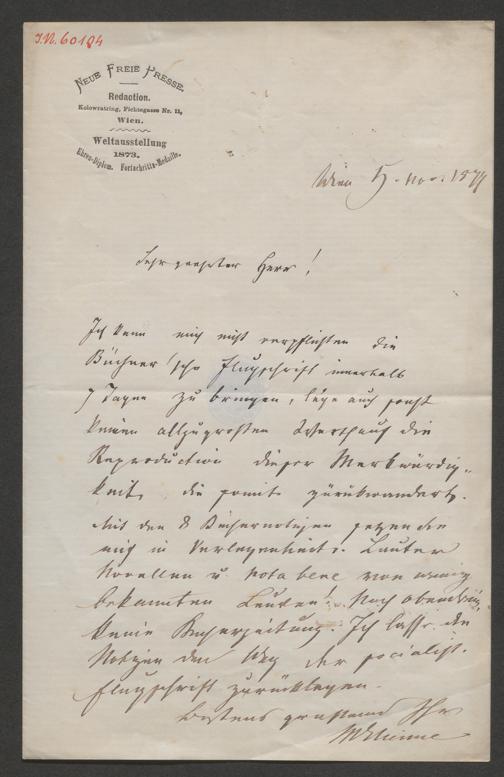 I.N. 60194
NEUE FREIE PRESSE.
Redaction.
Kolowratring, Fichtegasse Nr. 11,
Wien.
Weltausstellung
1873.
Ehren-Diplom. Fortschritts-Medaille.
Wien 5. Nov. 187
Sehr geehrter Herr!
Ich kann mich nicht verpflichten die
Büchner'sche Flugschrift innerhalb
7 Tagen zu bringen, lege auch sonst
keinen allzugroßen Werth auf die
Reproduction dieser Merkwürdig-
keit, die somit zurückwandert.
Mit den 8 Büchernotizen setzen Sie
mich in Verlegenheit. Lauter
Novellen u. Nota bene von wenig
bekannten Leuten! Noch obendrein
keine Bücherzeitung. Ich lasse die
Notizen den Weg der socialist.
Flugschrift zurücklegen.
Bestens grüßend Ihr